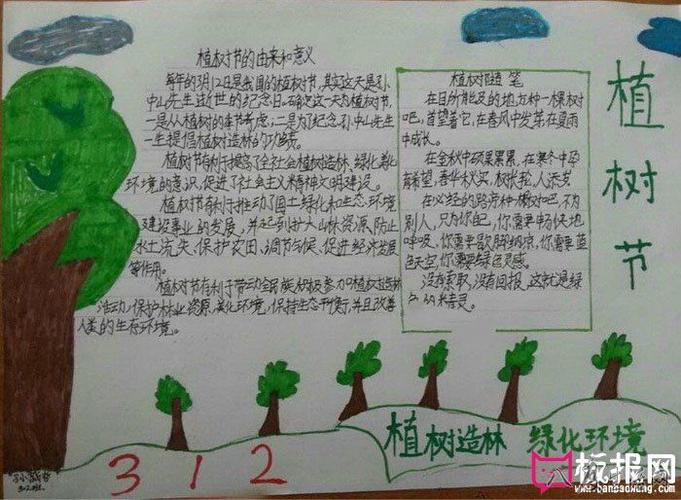 植树节的由来和意义
每年的3月12日是我国的植树节,其实这天是孙
中山先生逝世的纪念日.确定这一天为植树节,
一是从植树的季节考虑;二是为了纪念孙中山先生
一生提倡植树造林的功绩。
植树节有利于提高了全社会植树造林、绿化美化
环境的意识,促进了社会主义精神文明建设。
植树节有利于推动了国土绿化和生态环境
建设事业的发展,并起到扩大山林资源,防止
水土流失,保护农田,调节气候,促进经济发展
等作用。
植树节有利于带动全民族积极参加植树造林
活动,保护林业资源,美化环境,保持生态平衡,并且改善
人类的生存环境。
植树随笔
在目所能及的地方种一棵树
吧,首望着它,在春风中发芽在夏雨
中成长。
在金秋中硕果累累,在寒冬中孕
育希望,春华秋实,树长粒,人添岁。
在必经的路旁种一棵树吧,不为
别人,只为你自己,你需要畅快地
呼吸,你需要歇脚纳凉,你需要蓝
色天空,你需要绿色灵感。
没有索取,没有回报,这就是绿
色的精灵。
植树节
植树造林 绿化环境
3 1 2
板报网
www.banbaowang.com